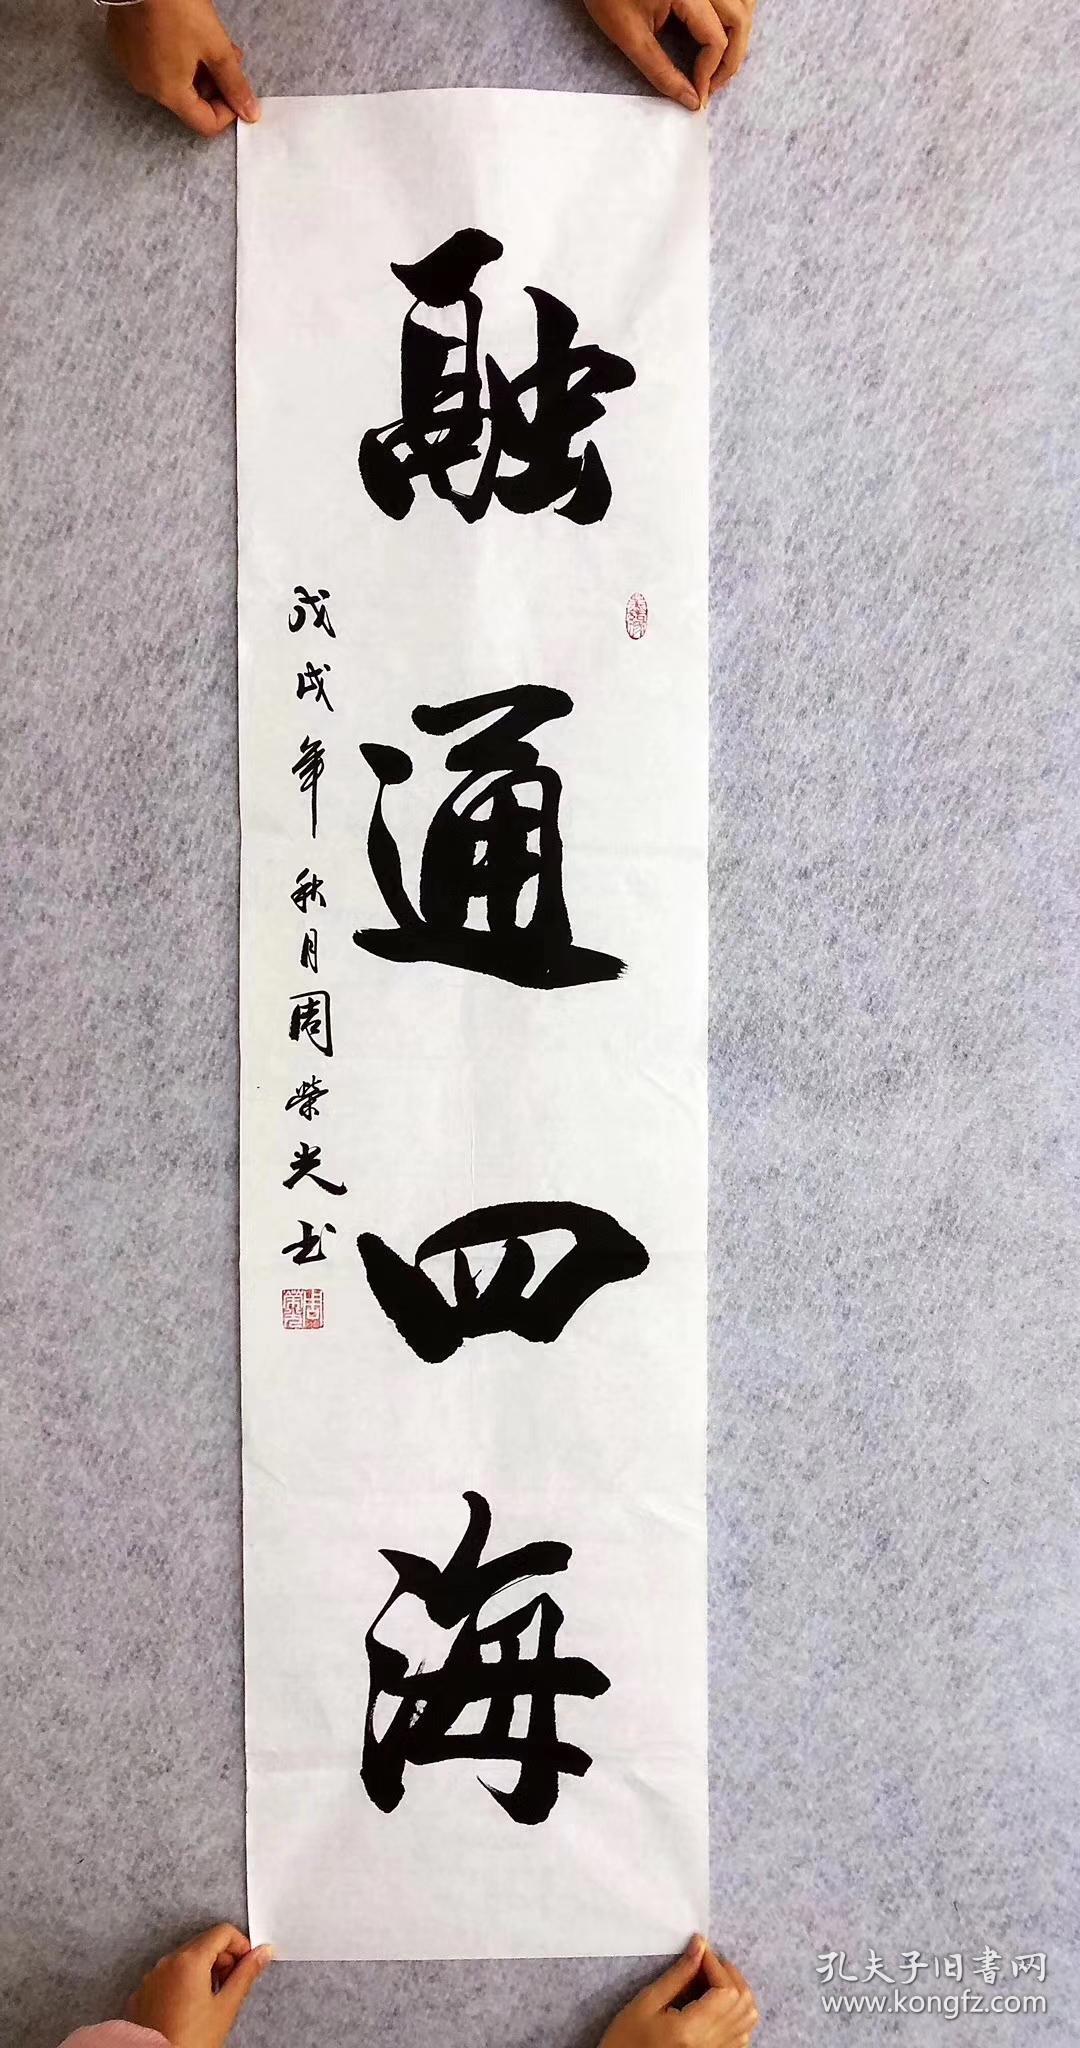 融通四海
戊戌年秋月周榮光书
周榮光
孔夫子旧書网
www.kongfz.com